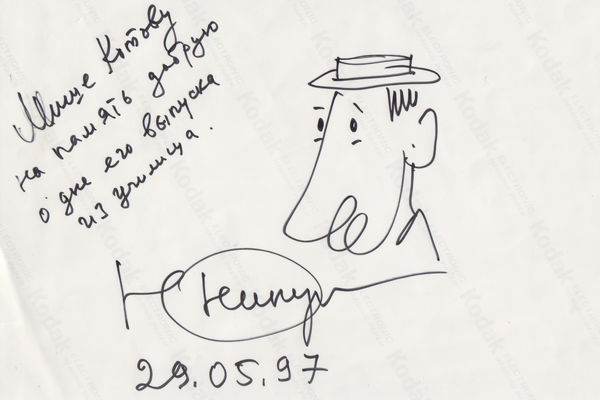 Мише Котову
на память добрую
о дне его выпуска
из училища.
Ю Никулин
29.05.97